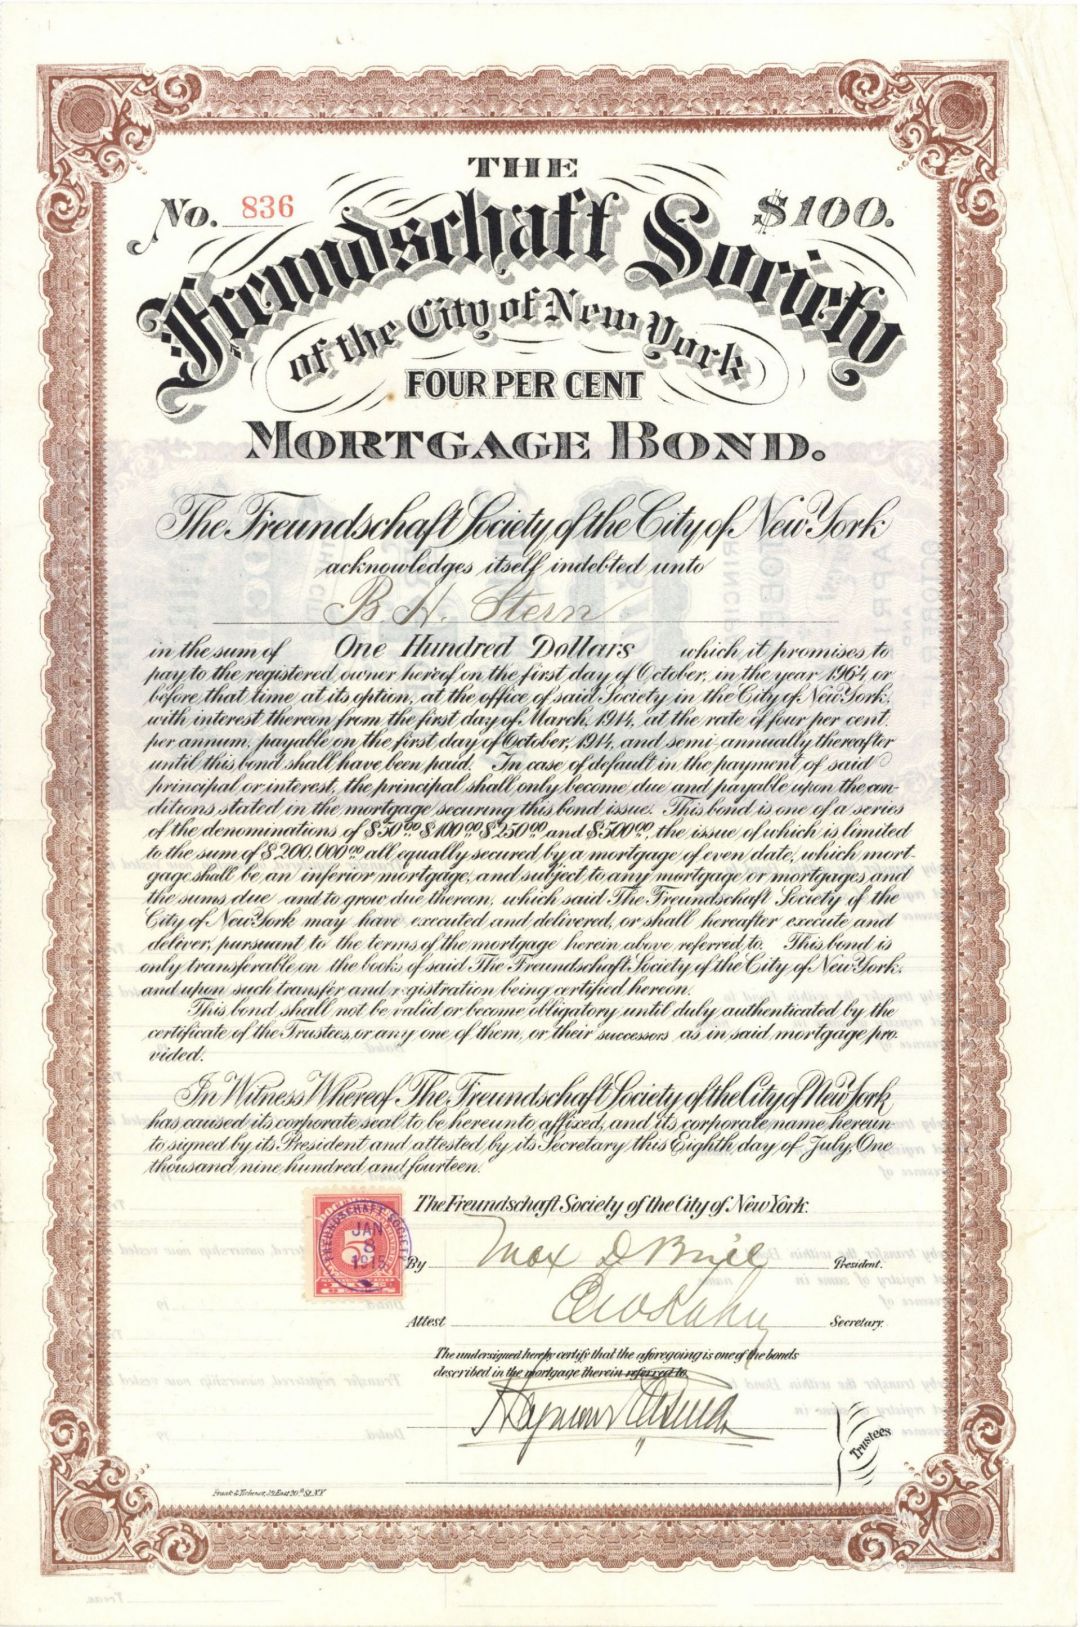 THE
No. 836
$100.
Freundschaft Society
of the City of New York
FOUR PER CENT
MORTGAGE BOND.
The Freundschaft Society of the City of New York
acknowledges itself indebted unto
B. H. Stern
in the sum of One Hundred Dollars which it promises to
pay to the registered owner hereof on the first day of October, in the year 1964 or
before that time at its option, at the office of said Society in the City of New York,
with interest thereon from the first day of March, 1914, at the rate of four per cent.
per annum, payable on the first day of October, 1914, and semi-annually thereafter
until this bond shall have been paid. In case of default in the payment of said
principal or interest, the principal shall only become due and payable upon the con-
ditions stated in the mortgage securing this bond issue. This bond is one of a series
of the denominations of $50.00 $100.00 $250.00 and $500.00, the issue of which is limited
to the sum of $200,000.00 all equally secured by a mortgage of even date, which mort-
gage shall be an inferior mortgage, and subject to any mortgage or mortgages and
the sums due and to grow due thereon, which said The Freundschaft Society of the
City of New York may have executed and delivered, or shall hereafter execute and
deliver, pursuant to the terms of the mortgage herein above referred to. This bond is
only transferable on the books of said The Freundschaft Society of the City of New York,
and upon such transfer and registration being certified hereon.
This bond shall not be valid or become obligatory until duly authenticated by the
certificate of the Trustees, or any one of them, or their successors as in said mortgage pro-
vided.
In Witness Whereof The Freundschaft Society of the City of New York
has caused its corporate seal to be hereunto affixed, and its corporate name hereun-
to signed by its President and attested by its Secretary this Eighth day of July, One
thousand nine hundred and fourteen.
The Freundschaft Society of the City of New York.
FREUNDSCHAFT SOCIETY
JAN
8
1915
By Max D Brill President.
Attest Secretary.
The undersigned hereby certify that the aforegoing is one of the bonds
described in the mortgage therein referred to.
Trustees